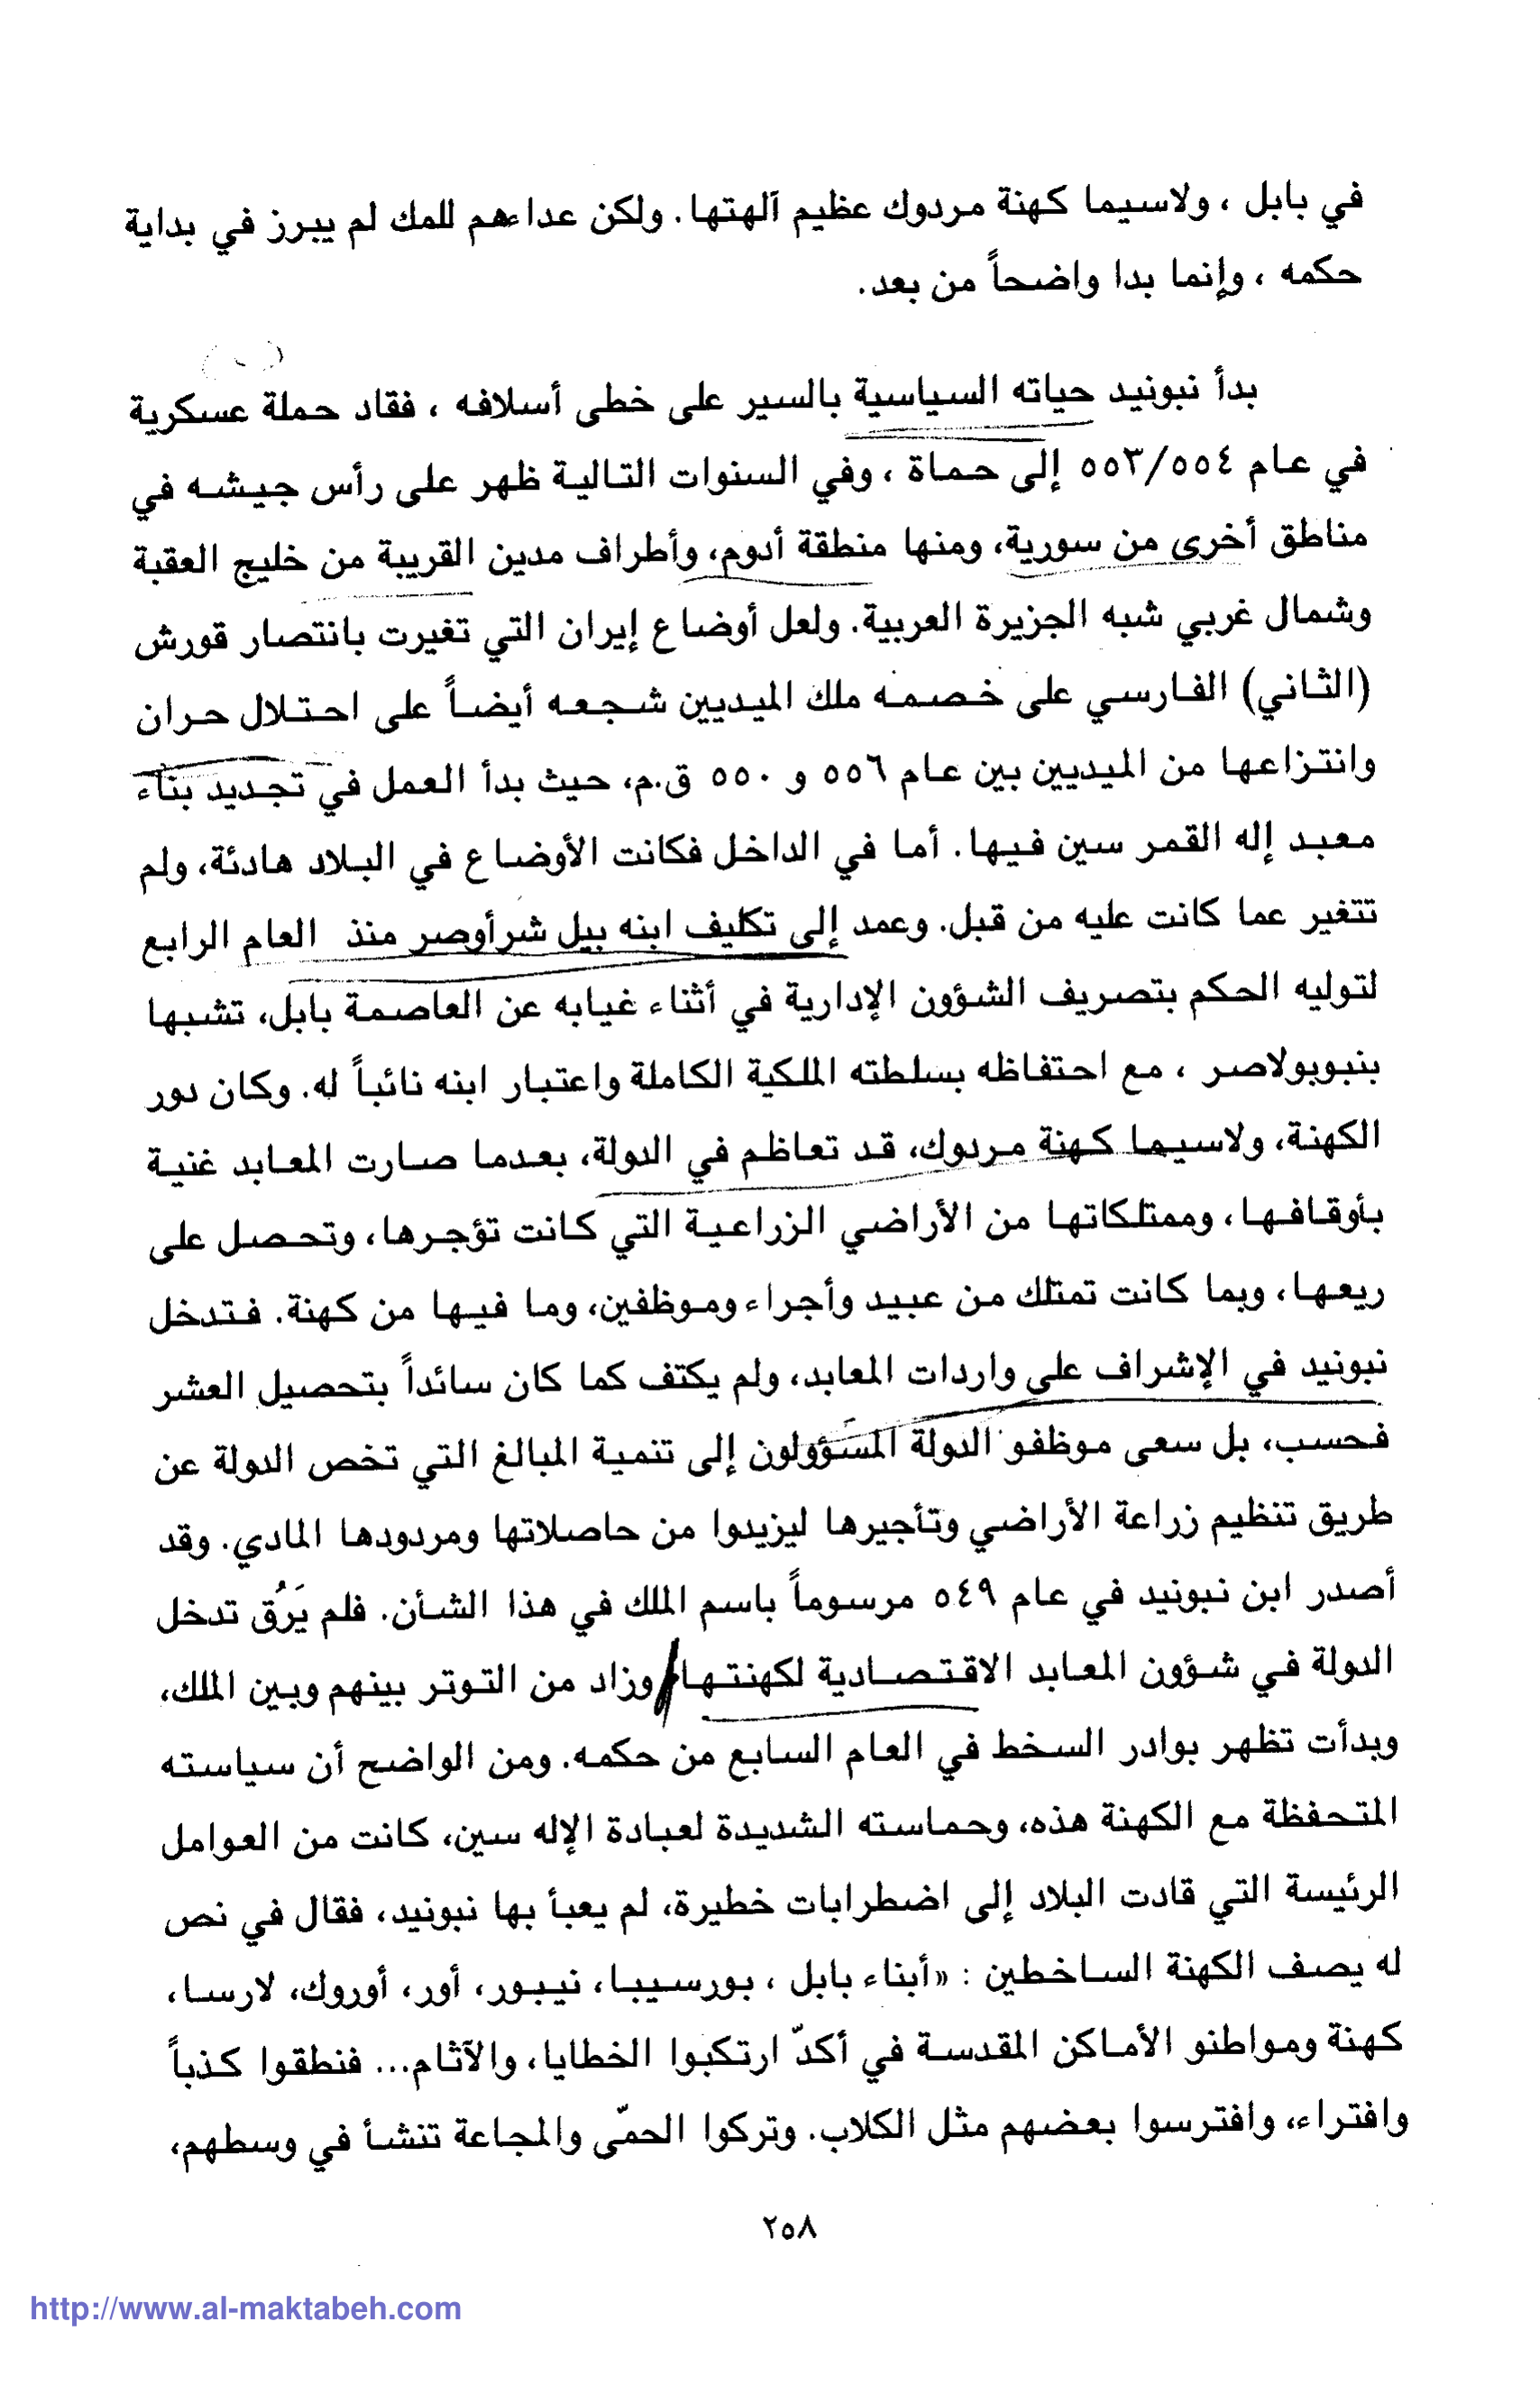 في بابل ، ولاسيما كهنة مردوك عظيم آلهتها. ولكن عداءهم للمك لم يبرز في بداية
حكمه ، وإنما بدا واضحاً من بعد.
بدأ نبونيد حياته السياسية بالسير على خطى أسلافه ، فقاد حملة عسكرية
في عام ٥٥٣/٥٥٤ إلى حماة ، وفي السنوات التالية ظهر على رأس جيشه في
مناطق أخرى من سورية، ومنها منطقة أدوم، وأطراف مدين القريبة من خليج العقبة
وشمال غربي شبه الجزيرة العربية. ولعل أوضاع إيران التي تغيرت بانتصار قورش
(الثاني) الفارسي على خصمه ملك الميديين شجعه أيضاً على احتلال حران
وانتزاعها من الميديين بين عام ٥٥٦ و ٥٥٠ ق.م، حيث بدأ العمل في تجديد بناء
معبد إله القمر سين فيها. أما في الداخل فكانت الأوضاع في البلاد هادئة، ولم
تتغير عما كانت عليه من قبل. وعمد إلى تكليف ابنه بيل شرأوصر منذ العام الرابع
لتوليه الحكم بتصريف الشؤون الإدارية في أثناء غيابه عن العاصمة بابل، تشبها
بنبوبولاصر ، مع احتفاظه بسلطته الملكية الكاملة واعتبار ابنه نائباً له. وكان دور
الكهنة، ولاسيما كهنة مردوك، قد تعاظم في الدولة، بعدما صارت المعابد غنية
بأوقافها، وممتلكاتها من الأراضي الزراعية التي كانت تؤجرها، وتحصل على
ريعها، وبما كانت تمتلك من عبيد وأجراء وموظفين، وما فيها من كهنة. فتدخل
نبونيد في الإشراف على واردات المعابد، ولم يكتف كما كان سائداً بتحصيل العشر
فحسب، بل سعى موظفو الدولة المسؤولون إلى تنمية المبالغ التي تخص الدولة عن
طريق تنظيم زراعة الأراضي وتأجيرها ليزيدوا من حاصلاتها ومردودها المادي. وقد
أصدر ابن نبونيد في عام ٥٤٩ مرسوماً باسم الملك في هذا الشأن. فلم يَرُق تدخل
الدولة في شؤون المعابد الاقتصادية لكهنتها، وزاد من التوتر بينهم وبين الملك،
وبدأت تظهر بوادر السخط في العام السابع من حكمه. ومن الواضح أن سياسته
المتحفظة مع الكهنة هذه، وحماسته الشديدة لعبادة الإله سين، كانت من العوامل
الرئيسة التي قادت البلاد إلى اضطرابات خطيرة، لم يعبأ بها نبونيد، فقال في نص
له يصف الكهنة الساخطين : «أبناء بابل ، بورسيبا، نيبور، أور، أوروك، لارسا،
كهنة ومواطنو الأماكن المقدسة في أكدّ ارتكبوا الخطايا، والآثام... فنطقوا كذباً
وافتراء، وافترسوا بعضهم مثل الكلاب. وتركوا الحمّى والمجاعة تنشأ في وسطهم،
٢٥٨
http://www.al-maktabeh.com